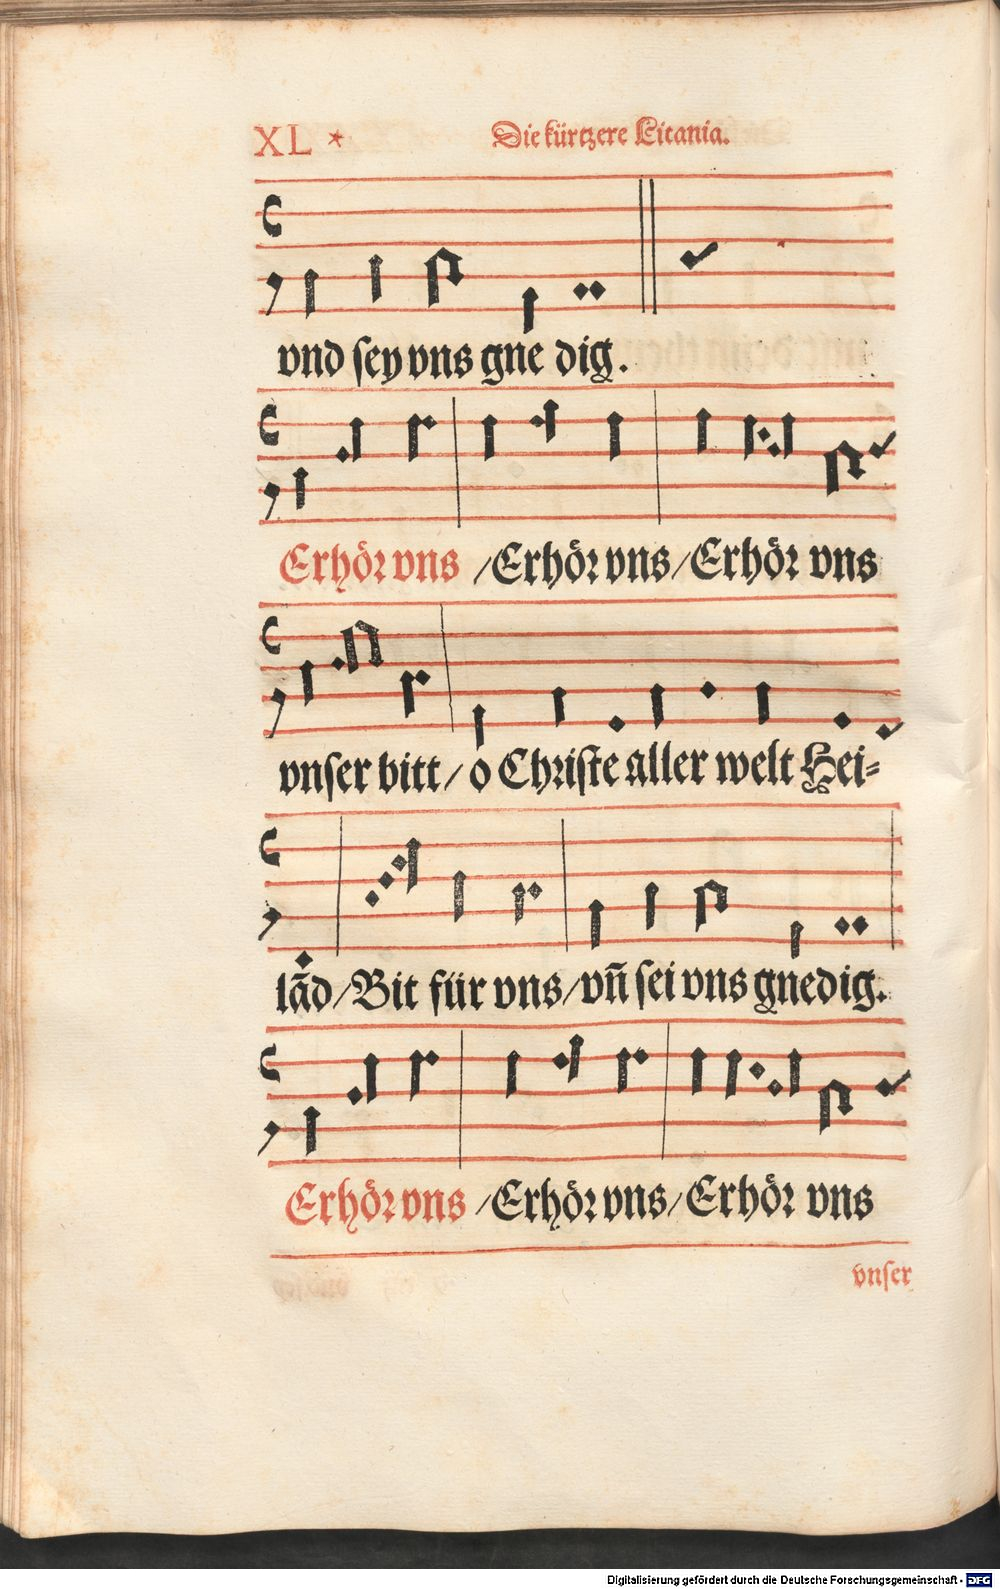 XL * Die kürtzere Litania.
vnd sey vns gne dig.
Erhör vns /Erhör vns/Erhör vns
vnser bitt/ o Christe aller welt Hei-
lãd/Bit für vns/vñ sei vns gnedig.
Erhör vns /Erhör vns/Erhör vns
vnser
Digitalisierung gefördert durch die Deutsche Forschungsgemeinschaft - DFG